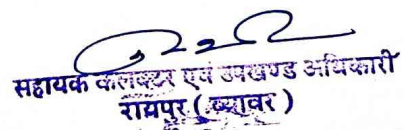 सहायक कलक्टर एवं उपखण्ड अधिकारी
रायपुर (ब्यावर)